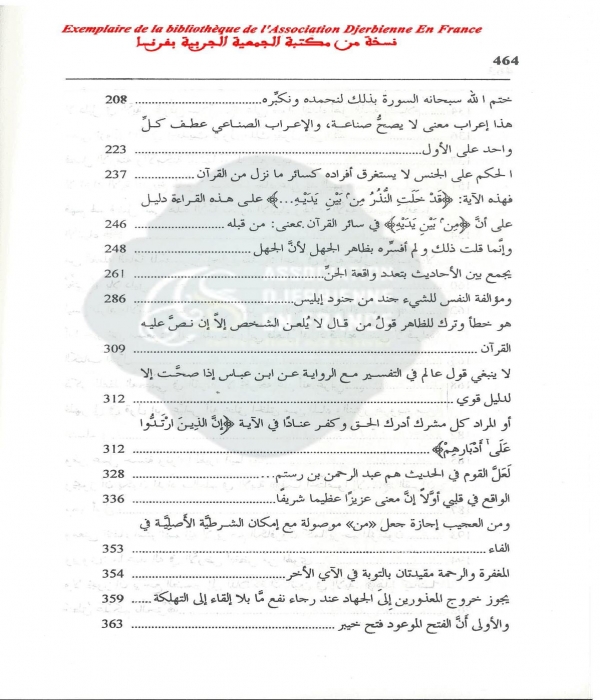 Exemplaire de la bibliothèque de l'Association Djerbienne En France
نسخة من مكتبة الجمعية الجربية بفرنسا
464
ختم الله سبحانه السورة بذلك لنحمده ونكبِّره ........ 208
هذا إعراب معنى لا يصحُّ صناعة، والإعراب الصناعي عطف كلِّ
واحد على الأول ........ 223
الحكم على الجنس لا يستغرق أفراده كسائر ما نزل من القرآن ........ 237
فهذه الآية: ﴿قَدْ خَلَتِ النُّذُرُ مِنْ بَيْنِ يَدَيْهِ...﴾ على هذه القراءة دليل
على أنَّ ﴿مِنْ بَيْنِ يَدَيْهِ﴾ في سائر القرآن بمعنى: من قبله ........ 246
وإنَّما قلت ذلك ولم أفسِّره بظاهر الجهل لأنَّ الجهل ........ 248
يجمع بين الأحاديث بتعدد واقعة الجنِّ ........ 261
ومؤالفة النفس للشيء جند من جنود إبليس ........ 286
هو خطأ وترك للظاهر قولُ من قال لا يُلعن الشخص إلاَّ إن نصَّ عليه
القرآن ........ 309
لا ينبغي قول عالم في التفسير مع الرواية عن ابن عباس إذا صحَّت إلا
لدليل قوي ........ 312
أو المراد كل مشرك أدرك الحق وكفر عنادًا في الآية ﴿إنَّ الذِينَ ارْتَدُّوا
عَلَىٰ أَدْبَارِهِمْ﴾ ........ 312
لَعَلَّ القوم في الحديث هم عبد الرحمن بن رستم... ........ 328
الواقع في قلبي أوَّلاً إنَّ معنى عزيزًا عظيما شريفًا ........ 336
ومن العجيب إجازة جعل «من» موصولة مع إمكان الشرطيَّة الأصليَّة في
الفاء ........ 353
المغفرة والرحمة مقيدتان بالتوبة في الآي الأخر ........ 354
يجوز خروج المعذورين إلى الجهاد عند رجاء نفع مَّا بلا إلقاء إلى التهلكة ........ 359
والأولى أَنَّ الفتح الموعود فتح خيبر ........ 363